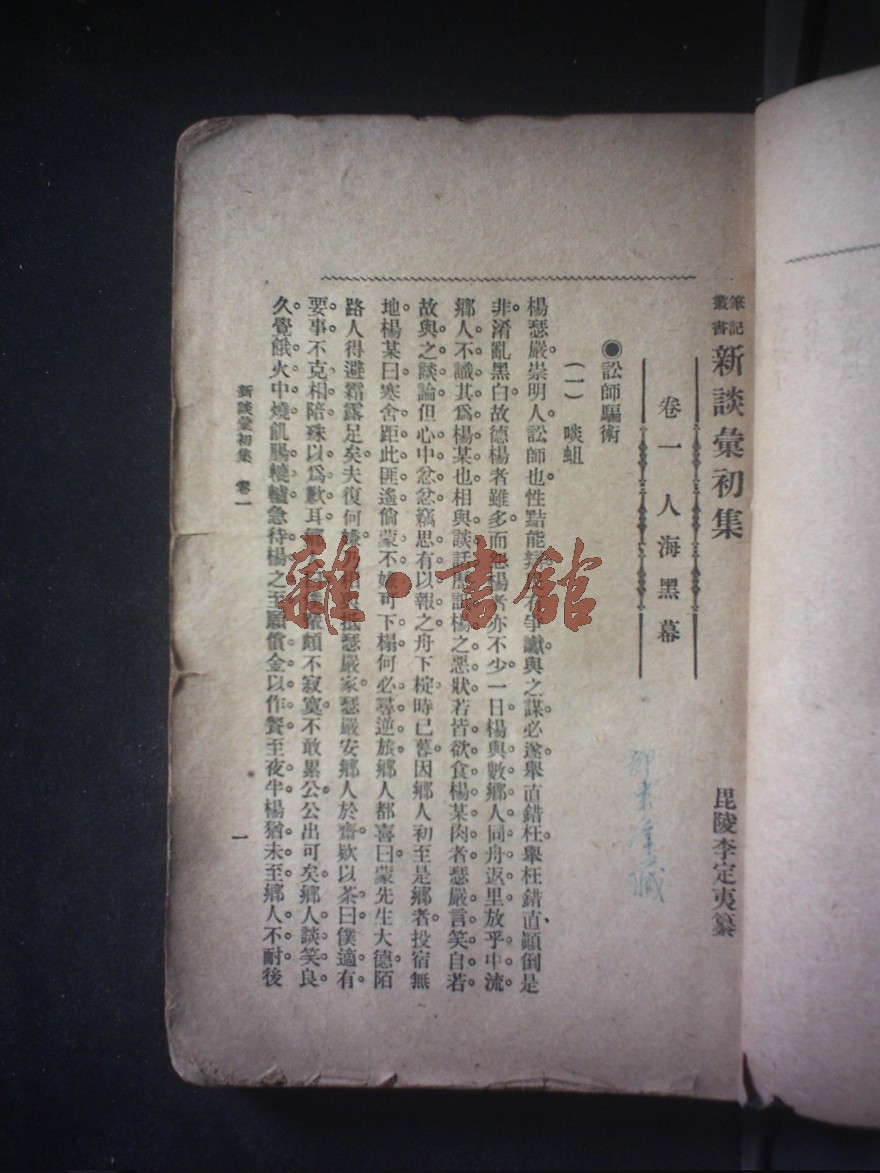 筆記叢書 新談彙初集 毘陵李定夷纂
卷一 人海黑幕
◉訟師騙術
(一) 啖蛆
楊瑟嚴崇明人訟師也性黠能辯 有爭讞與之謀必遂舉直錯枉舉枉錯直顚倒是
非淆亂黑白故德楊者雖多而怨楊者亦不少一日楊與數鄉人同舟返里放乎中流
鄉人不識其爲楊某也相與談話 楊之惡狀若皆欲食楊某肉者瑟嚴言笑自若
故與之談論但心中忿忿竊思有以報之舟下椗時已暮因鄉人初至是鄉者投宿無
地楊某曰寒舍距此匪遙倘蒙不嫌可下榻何必尋逆旅鄉人都喜曰蒙先生大德陌
路人得避霜露足矣夫復何嫌 相與抵瑟嚴家瑟嚴安鄉人於齋欵以茶曰僕適有
要事不克相陪殊以爲歉耳鄉人 頗不寂寞不敢累公公出可矣鄉人談笑良
久覺餓火中燒飢腸轆轤急待楊之至願償金以作餐至夜半楊猶未至鄉人不耐後
新談彙初集 卷一
一
雜·書館